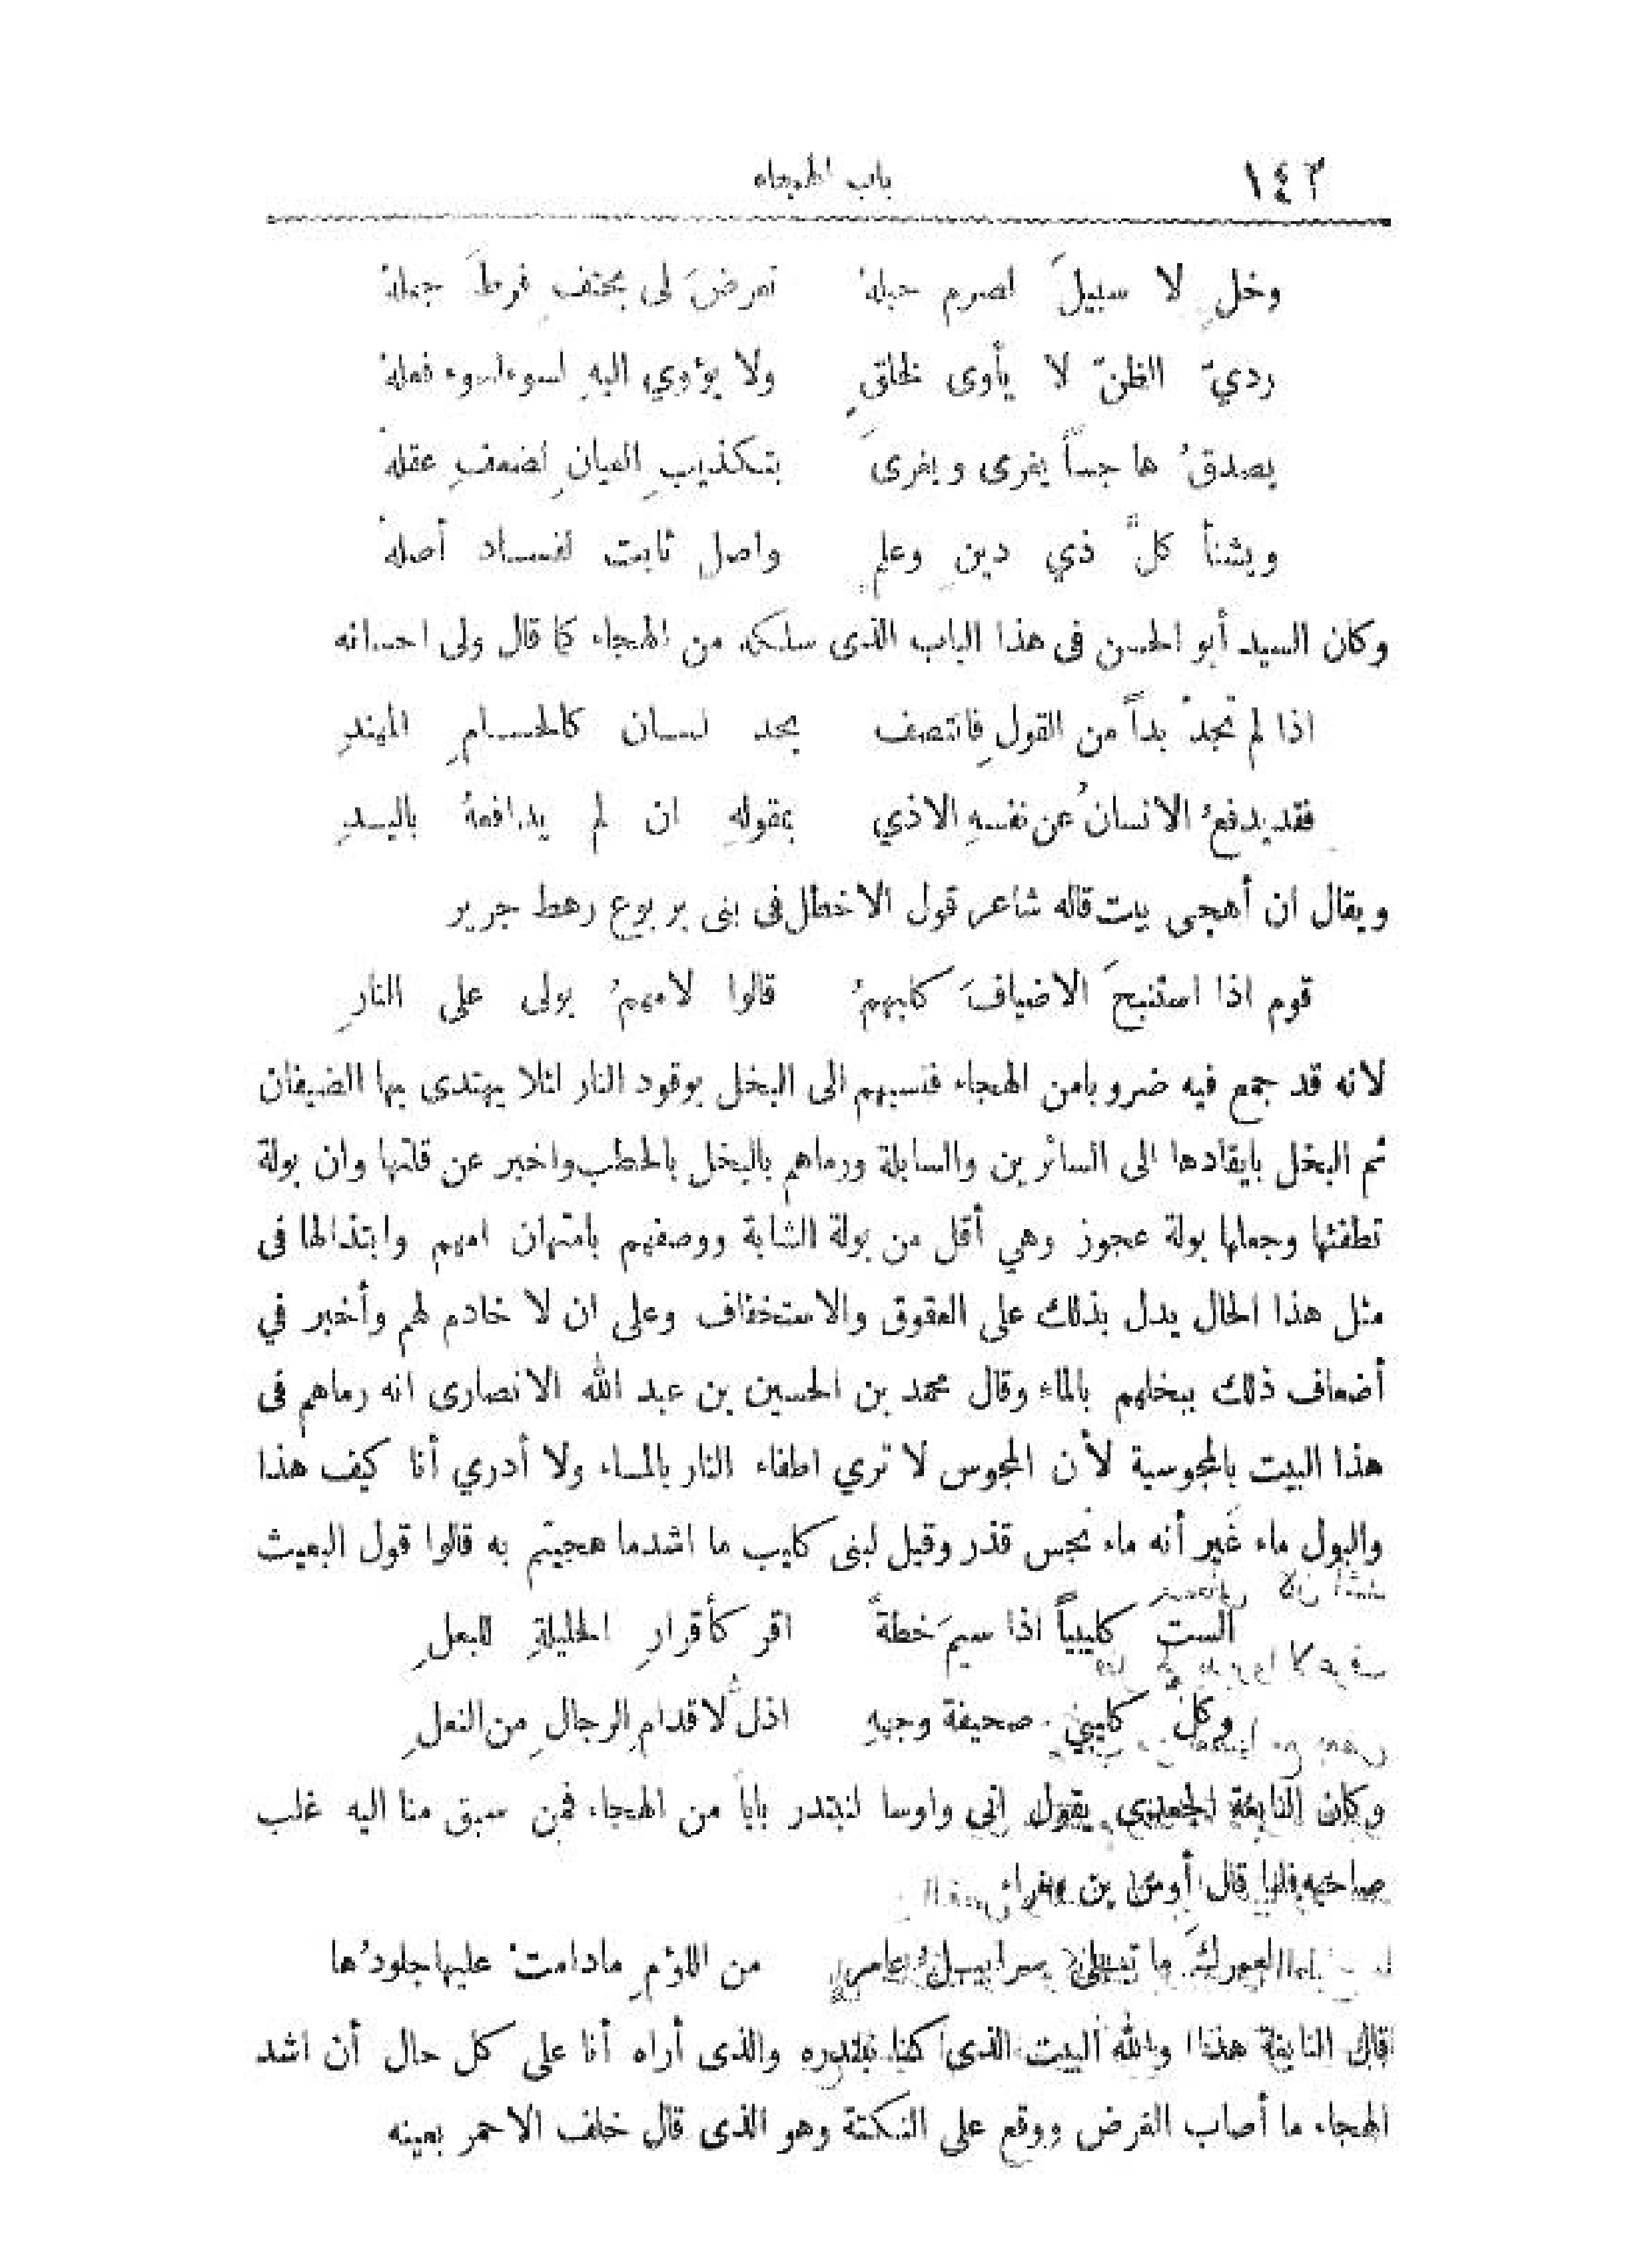 ١٤٢ باب الهجاء
وخلِ لا سبيلَ لصرم حبلهْ تعرضَ لى بحتف فرطَ جهلهْ
رديّ الظنّ لا يأوى لخلقٍ ولا يؤوي اليهِ لسوء فعلهْ
يصدقُ هاجساً يغرى ويغرى بتكذيبِ العيانِ لضعفِ عقلهْ
ويشنأ كلَّ ذي دينٍ وعلمٍ واصلٍ ثابت لفساد أصلهْ
وكان السيد أبو الحسن فى هذا الباب الذى سلكه من الهجاء كما قال ولى احسانه
اذا لم تجدْ بداً من القولِ فانتصف بحد لسان كالحسامِ المهندِ
فقد يدفعُ الانسانُ عن نفسهِ الاذي بمقولهِ ان لم يدافعهُ باليدِ
ويقال ان أهجى بيت قاله شاعر قول الاخطل فى بنى يربوع رهط جرير
قوم اذا استنبحَ الاضيافَ كلبهمُ قالوا لامهمُ بولى على النارِ
لانه قد جمع فيه ضروبا من الهجاء فنسبهم الى البخل بوقود النار لئلا يهتدى بها الضيفان
ثم البخل بايقادها الى السائرين والسابلة ورماهم بالبخل بالحطب واخبر عن قلتها وان بولة
تطفئها وجعلها بولة عجوز وهي أقل من بولة الشابة ووصفهم بامتهان امهم وابتذالها فى
مثل هذا الحال يدل بذلك على العقوق والاستخفاف وعلى ان لا خادم لهم وأخبر في
أضعاف ذلك ببخلهم بالماء وقال محمد بن الحسين بن عبد الله الانصارى انه رماهم فى
هذا البيت بالمجوسية لأن المجوس لا تري اطفاء النار بالماء ولا أدري أنا كيف هذا
والبول ماء غير أنه ماء نجس قذر وقيل لبنى كليب ما اشد ما هجيتم به قالوا قول البعيث
ألستَ كليبياً اذا سيمَ خطةً اقر كأقرارِ الحليلةِ للبعلِ
وكلُّ كليبيٍ صحيفة وجههِ اذلُّ لاقدامِ الرجالِ من النعلِ
وكان النابغة الجعدي يقول انى واوسا لنبتدر باباً من الهجاء فمن سبق منا اليه غلب
صاحبه فلما قال أوس بن مغراء
لعمركَ ما تبلى سرابيلُ عامرٍ من اللؤمِ مادامتْ عليها جلودُها
قال النابغة هذا والله البيت الذى كنا نبتدره والذى أراه أنا على كل حال أن اشد
الهجاء ما أصاب الغرض ووقع على النكتة وهو الذى قال خلف الاحمر بعينه